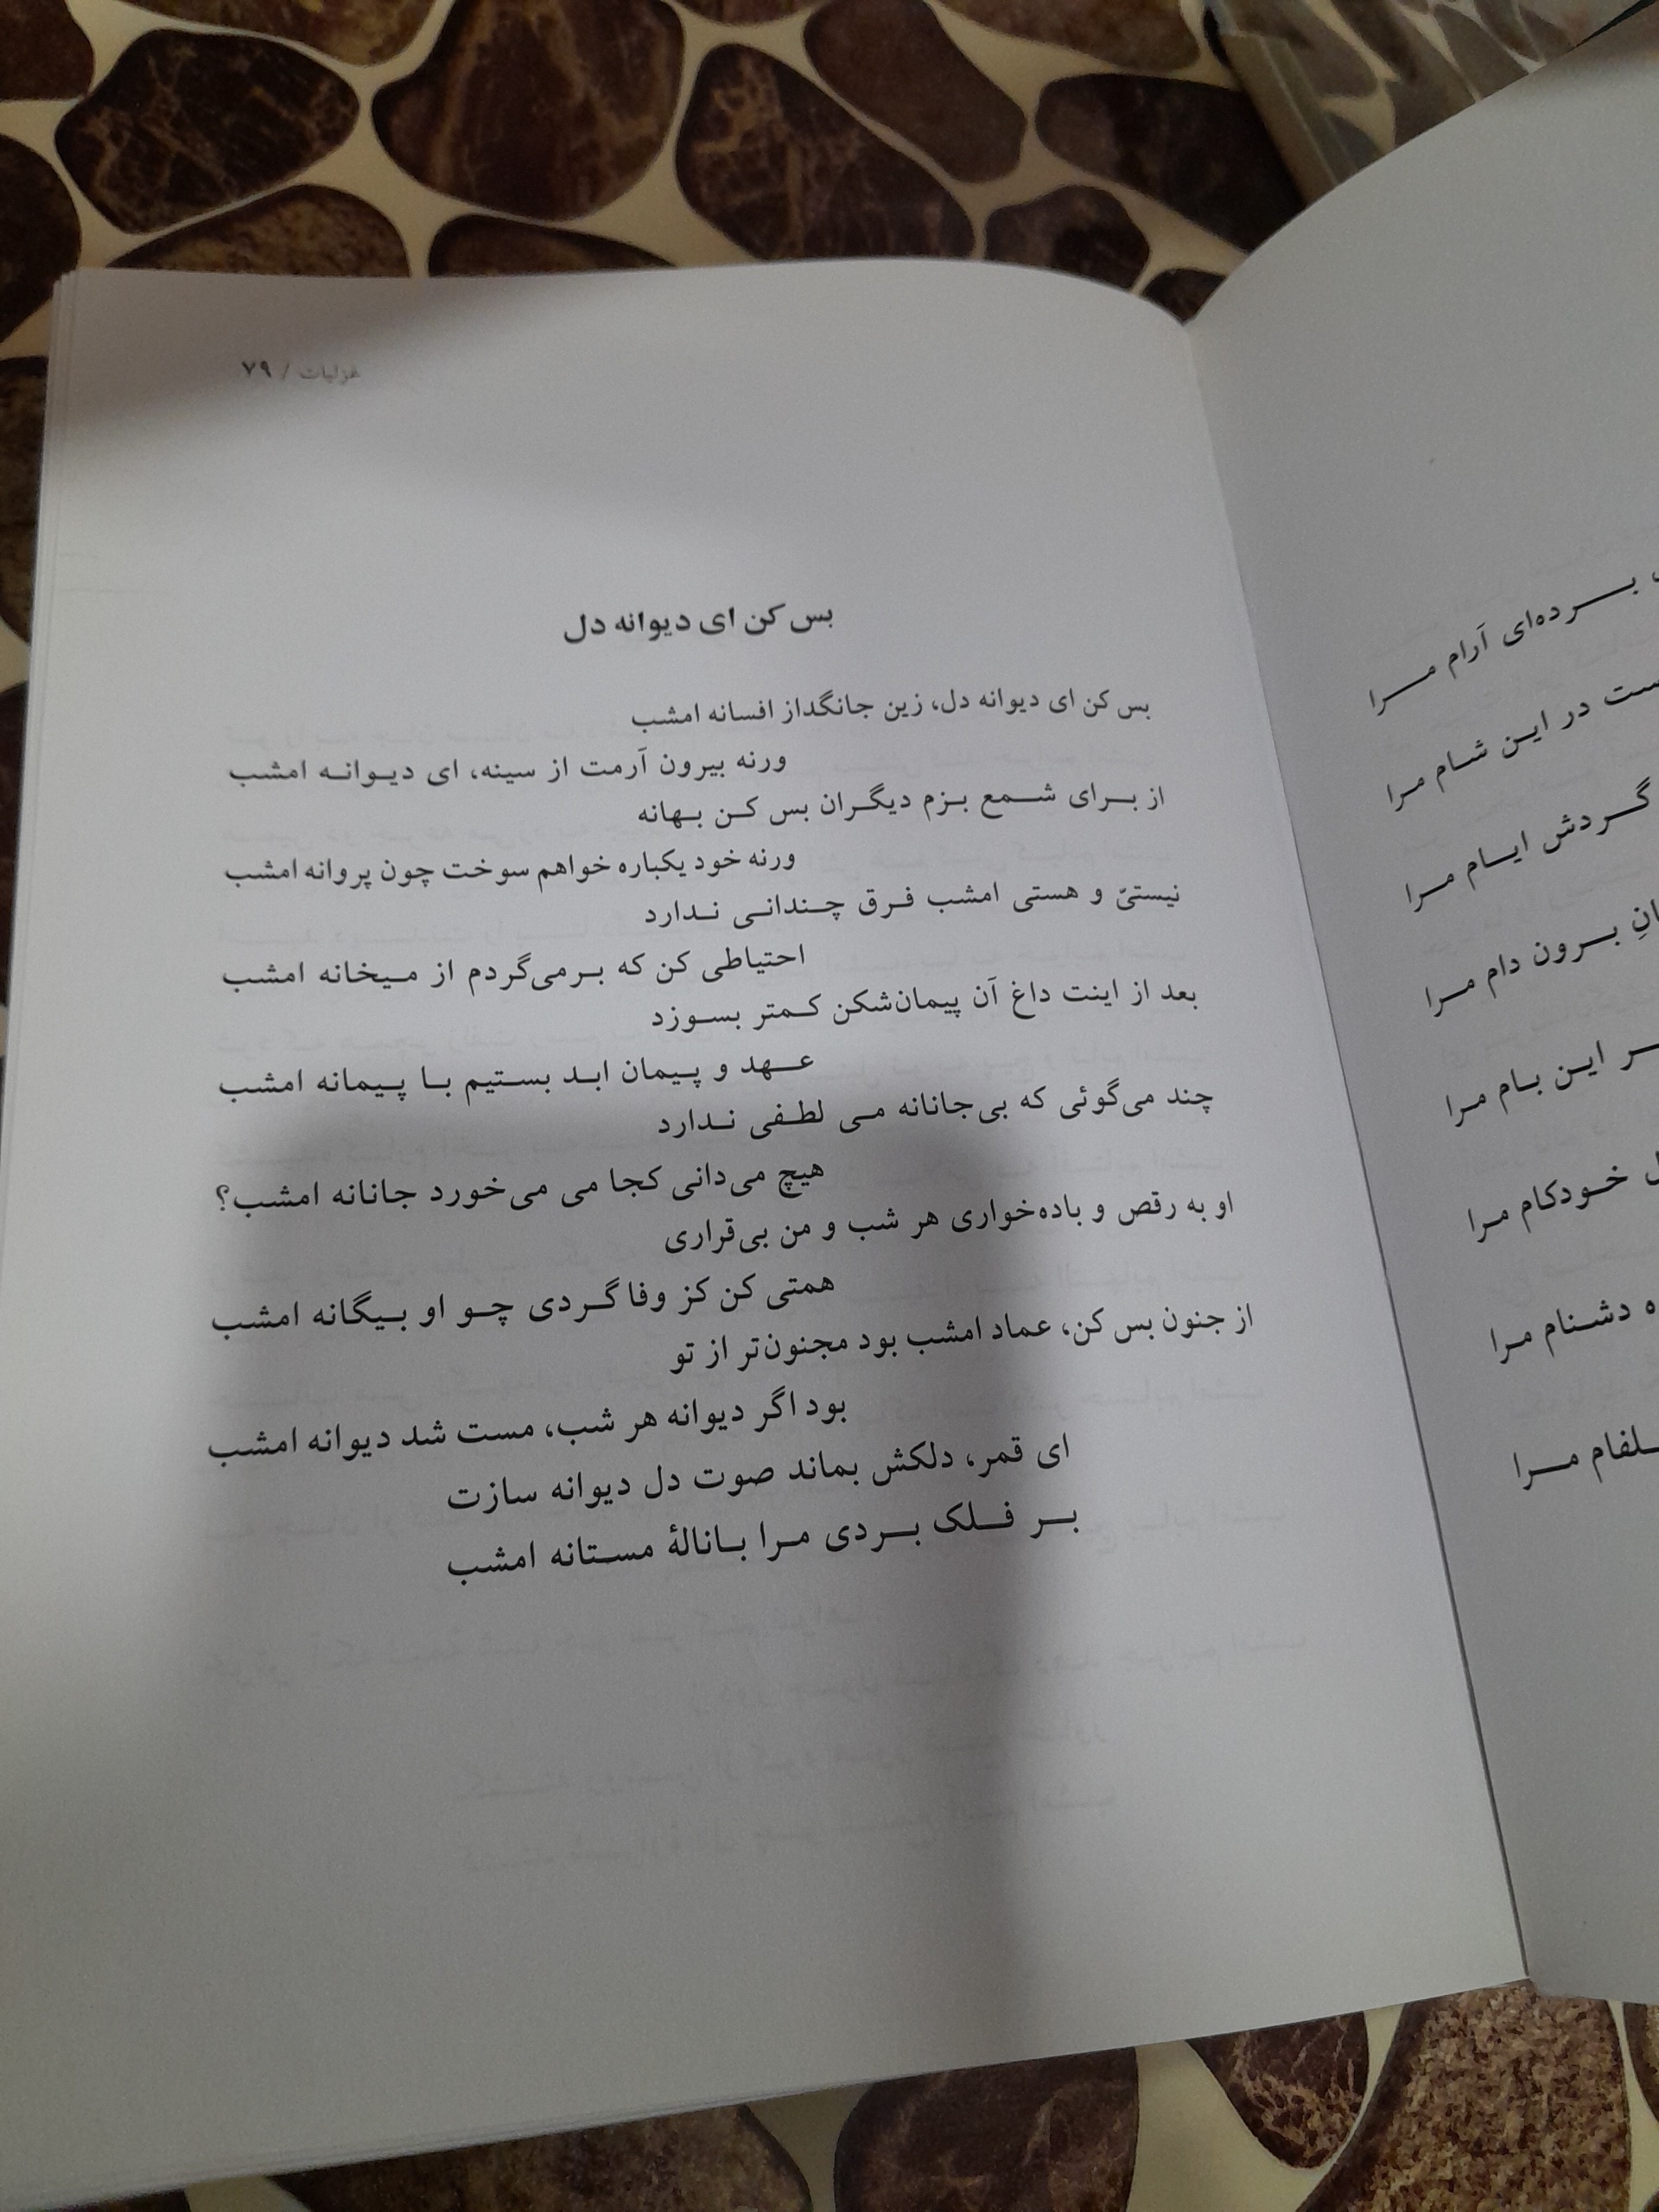 غزلیات / ۷۹
بس کن ای دیوانه دل
بس کن ای دیوانه دل، زین جانگداز افسانه امشب
ورنه بیرون آرمت از سینه، ای دیوانه امشب
از برای شمع بزم دیگران بس کن بهانه
ورنه خود یکباره خواهم سوخت چون پروانه امشب
نیستیّ و هستی امشب فرق چندانی ندارد
احتیاطی کن که برمی‌گردم از میخانه امشب
بعد از اینت داغ آن پیمان‌شکن کمتر بسوزد
عهد و پیمان ابد بستیم با پیمانه امشب
چند می‌گوئی که بی‌جانانه می لطفی ندارد
هیچ می‌دانی کجا می می‌خورد جانانه امشب؟
او به رقص و باده‌خواری هر شب و من بی‌قراری
همتی کن کز وفا گردی چو او بیگانه امشب
از جنون بس کن، عماد امشب بود مجنون‌تر از تو
بود اگر دیوانه هر شب، مست شد دیوانه امشب
ای قمر، دلکش بماند صوت دل دیوانه سازت
بر فلک بردی مرا باناله‌ٔ مستانه امشب
برده‌ای آرام مرا
در این شام مرا
گردش ایام مرا
برون دام مرا
این بام مرا
خودکام مرا
دشنام مرا
مرا